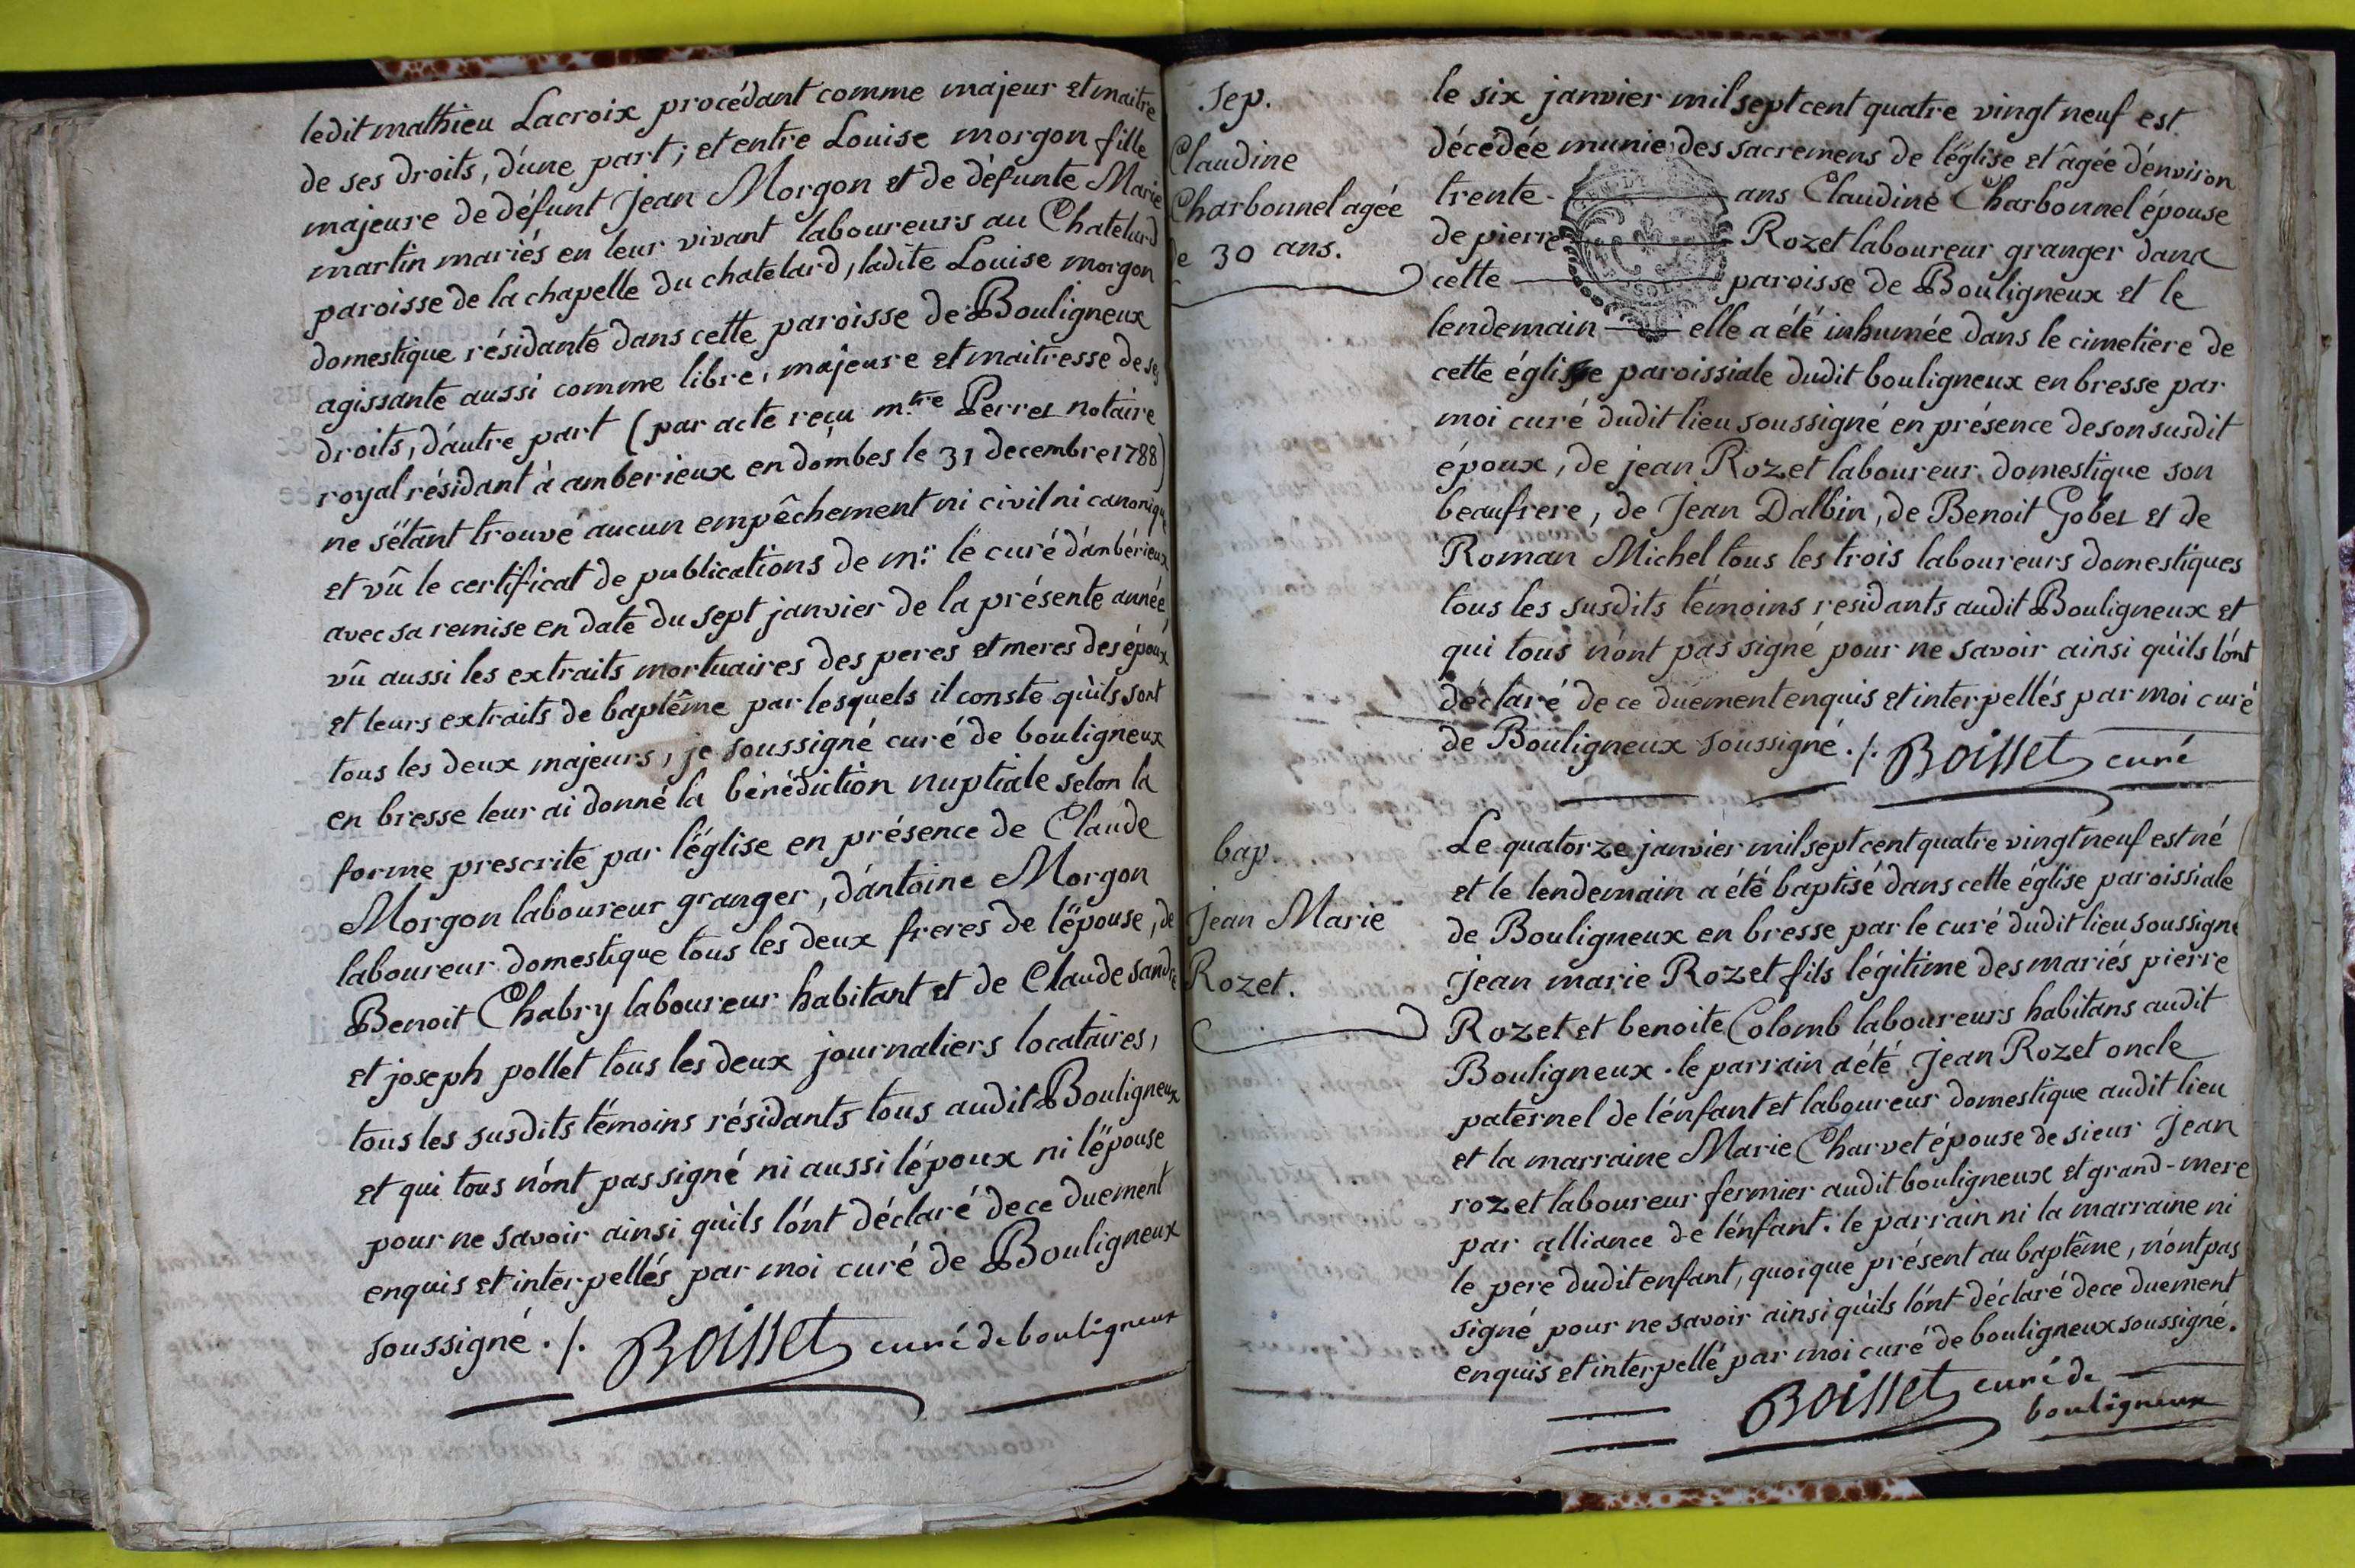 ledit mathieu Lacroix procédant comme majeur et maitre
de ses droits, d'une part; et entre Louise morgon fille
majeure de défunt Jean Morgon et de défunte Marie
martin mariés en leur vivant laboureurs au Chatelard
paroisse de la chapelle du chatelard, ladite Louise morgon
domestique résidante dans cette paroisse de Bouligneux
agissante aussi comme libre, majeure et maitresse de ses
droits, d'autre part (par acte reçu m.tre Perret notaire
royal résidant à amberieux en dombes le 31 decembre 1788)
ne s'étant trouvé aucun empêchement ni civil ni canonique
et vû le certificat de publications de mr. le curé d'ambérieux
avec sa remise en date du sept janvier de la présente année,
vû aussi les extraits mortuaires des peres et meres des époux
et leurs extraits de baptême par lesquels il conste qu'ils sont
tous les deux majeurs, je soussigné curé de bouligneux
en bresse leur ai donné la bénédiction nuptiale selon la
forme prescrite par l'église en présence de Claude
Morgon laboureur granger, d'antoine Morgon
laboureur domestique tous les deux freres de l'épouse, de
Benoit Chabry laboureur habitant et de Claude sandre
et joseph pollet tous les deux journaliers locataires,
tous les susdits témoins résidants tous audit Bouligneux
et qui tous n'ont pas signé ni aussi l'époux ni l'épouse
pour ne savoir ainsi qu'ils l'ont déclaré de ce duement
enquis et interpellés par moi curé de Bouligneux
soussigné ./. Boisset curé de bouligneux
Sep.
Claudine
Charbonnel agée
de 30 ans.
le six janvier mil sept cent quatre vingt neuf est
décédée munie des sacremens de l'église et âgée d'environ
trente - ans Claudine Charbonnel épouse
de pierre Rozet laboureur granger dans
cette paroisse de Bouligneux et le
lendemain elle a été inhumée dans le cimetiere de
cette église paroissiale dudit bouligneux en bresse par
moi curé dudit lieu soussigné en présence de son susdit
époux, de jean Rozet laboureur domestique son
beaufrere, de Jean Dalbin, de Benoit Gobet et de
Roman Michel tous les trois laboureurs domestiques
tous les susdits témoins residants audit Bouligneux et
qui tous n'ont pas signé pour ne savoir ainsi qu'ils l'ont
déclaré de ce duement enquis et interpellés par moi curé
de Bouligneux soussigné ./. Boisset curé
bap.
Jean Marie
Rozet.
Le quatorze janvier mil sept cent quatre vingt neuf est né
et le lendemain a été baptisé dans cette église paroissiale
de Bouligneux en bresse par le curé dudit lieu soussigné
Jean marie Rozet fils légitime des mariés pierre
Rozet et benoite Colomb laboureurs habitans audit
Bouligneux. le parrain a été Jean Rozet oncle
paternel de l'enfant et laboureur domestique audit lieu
et la marraine Marie Charvet épouse de sieur Jean
rozet laboureur fermier audit bouligneux et grand-mere
par alliance de l'enfant. le parrain ni la marraine ni
le pere dudit enfant, quoique présent au baptême, n'ont pas
signé pour ne savoir ainsi qu'ils l'ont déclaré de ce duement
enquis et interpellé par moi curé de bouligneux soussigné.
Boisset curé de
bouligneux